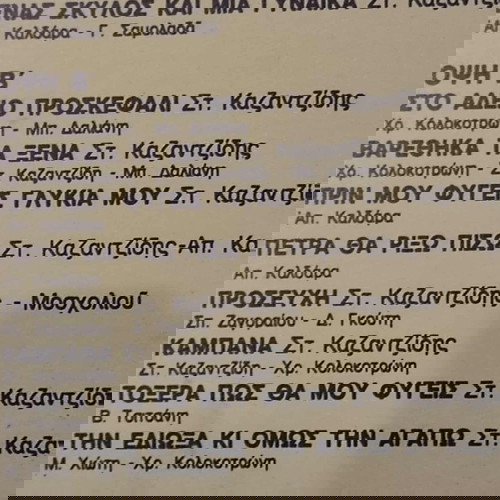 ΕΝΑΣ ΣΚΥΛΟΣ ΚΑΙ ΜΙΑ ΓΥΝΑΙΚΑ Στ. Καζαντζίδ
Απ. Καλδάρα - Γ. Σαμολαδά
ΟΨΗ Β΄
ΣΤΟ ΑΔΕΙΟ ΠΡΟΣΚΕΦΑΛΙ Στ. Καζαντζίδης
Χρ. Κολοκοτρώνη - Μπ. Δαλιάνη
ΒΑΡΕΘΗΚΑ ΤΑ ΞΕΝΑ Στ. Καζαντζίδης
Στ. Καζαντζίδη - Μπ. Δαλιάνη Χρ. Κολοκοτρώνη - Στ
Σ ΓΛΥΚΙΑ ΜΟΥ Στ. Καζαντζί ΠΡΙΝ ΜΟΥ ΦΥΓΕΙΣ
Απ. Καλδάρα
Στ. Καζαντζίδης-Απ. Κα ΠΕΤΡΑ ΘΑ ΡΙΞΩ ΠΙΣΩ
Απ. Καλδάρα
- Μοσχολιού ΠΡΟΣΕΥΧΗ Στ. Καζαντζίδης
Σπ. Ζαγοραίου - Δ. Γκούτη
ΚΑΜΠΑΝΑ Στ. Καζαντζίδης
Στ. Καζαντζίδη - Χρ. Κολοκοτρώνη
Καζαντζίδ ΤΟΞΕΡΑ ΠΩΣ ΘΑ ΜΟΥ ΦΥΓΕΙΣ Στ.
Β. Τσιτσάνη
Καζα ΤΗΝ ΕΔΙΩΞΑ ΚΙ ΟΜΩΣ ΤΗΝ ΑΓΑΠΩ Στ.
Μ. Χιώτη - Χρ. Κολοκοτρώνη